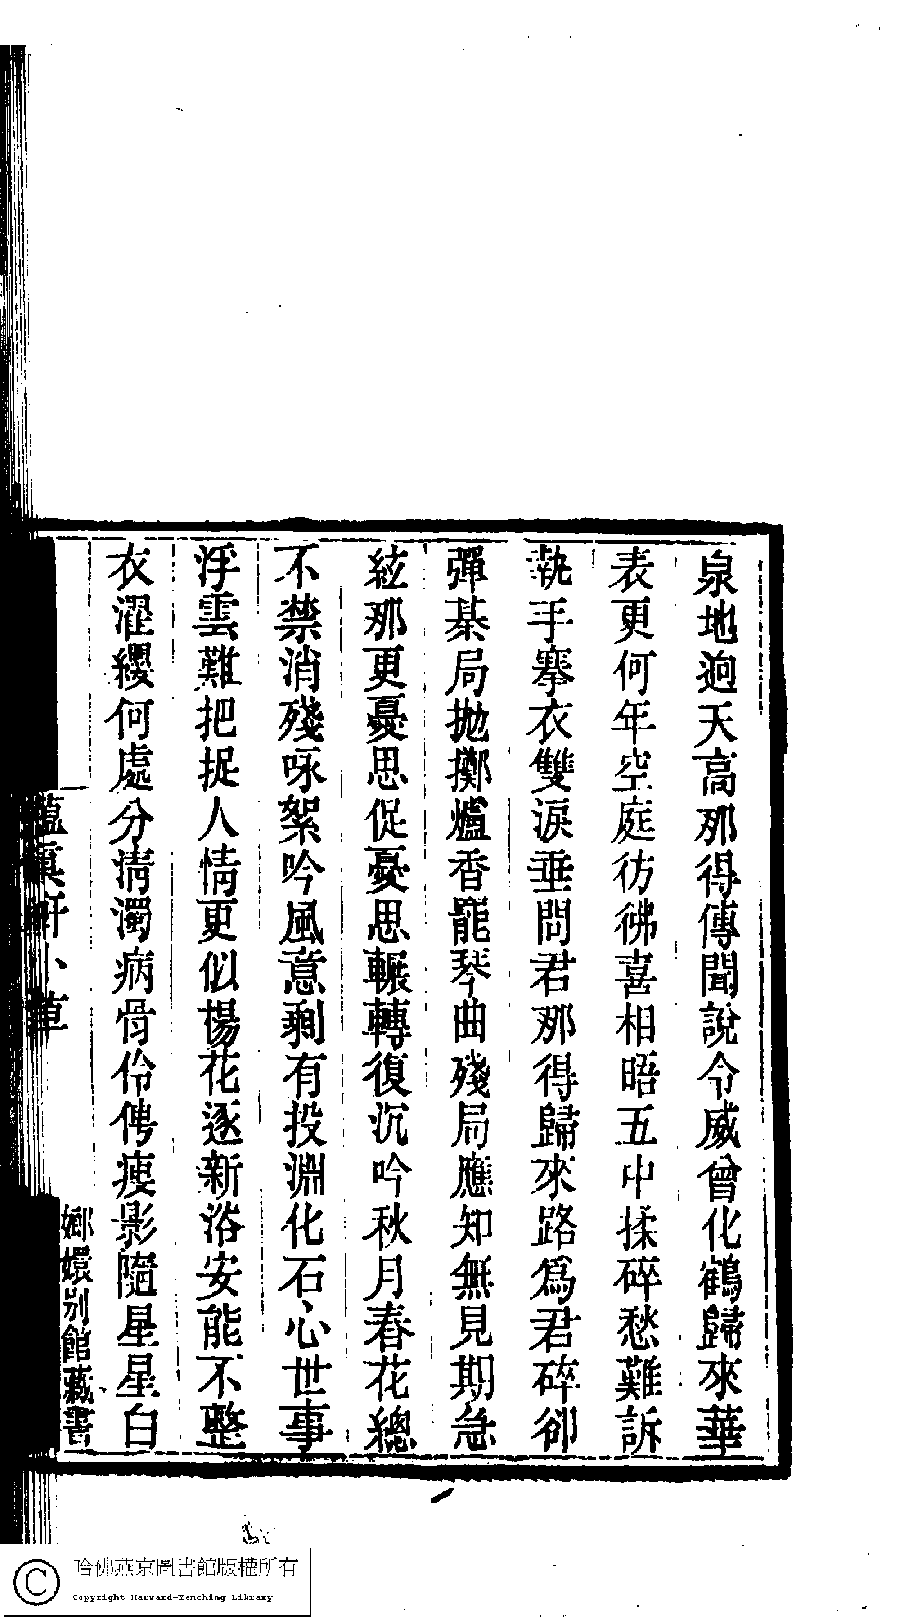 泉地迥天高那得傳聞說令威曾化鶴歸來華
表更何年空庭彷彿喜相晤五中揉碎愁難訴
執手搴衣雙淚垂問君那得歸來路爲君碎卻
彈棊局拋擲爐香罷琴曲殘局應知無見期急
絃那更憂思促憂思輾轉復沉吟秋月春花總
不禁消殘咏絮吟風意剩有投淵化石心世事
浮雲難把捉人情更似楊花逐新浴安能不整
衣濯纓何處分清濁病骨伶俜瘦影隨星星白
蘊真軒小草
嫏嬛別館藏書
哈佛燕京圖書館版權所有
Copyright Harvard-Yenching Library